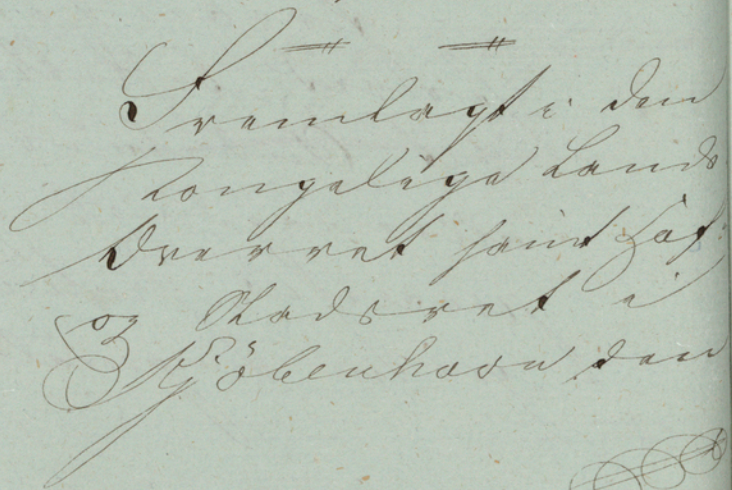 Fremlagt i den
Kongelige Lands
Overret samt Hof-
og Stadsret i
Kjöbenhavn den